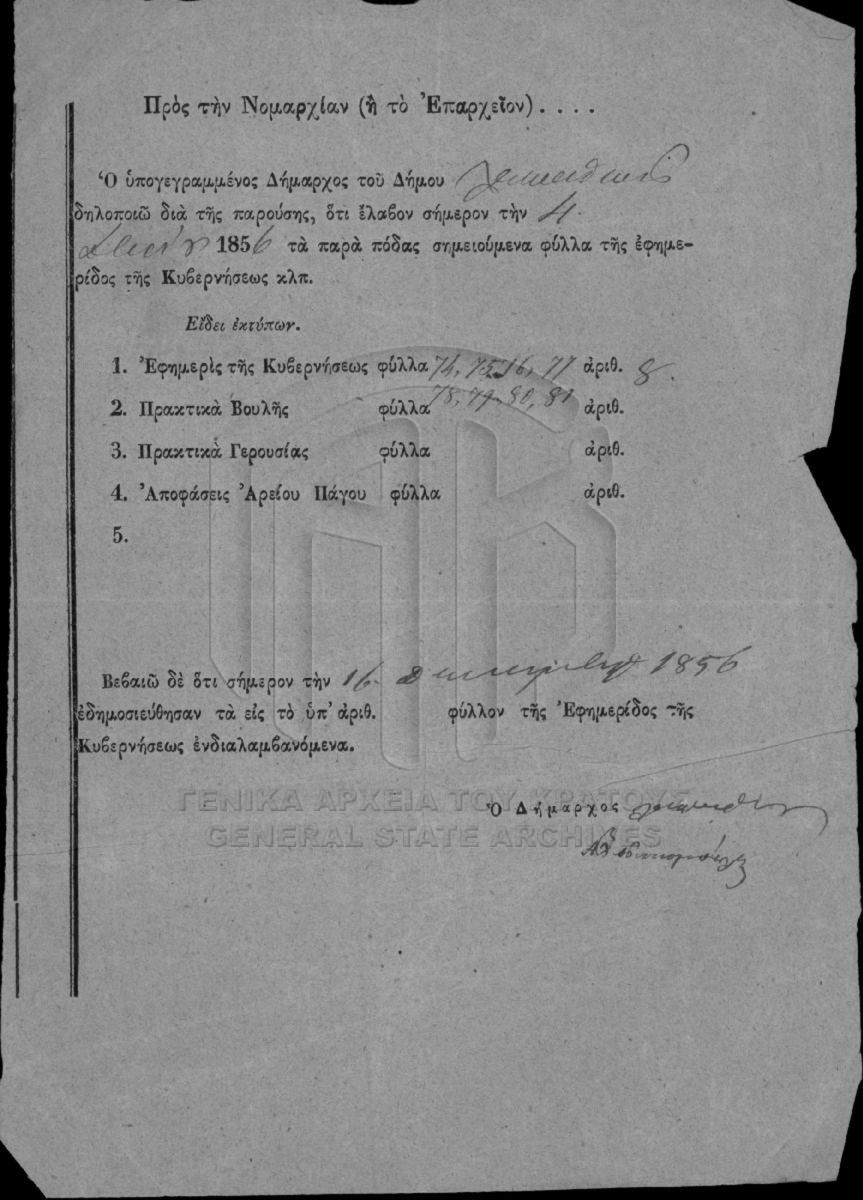 Πρὸς τὴν Νομαρχίαν (ἢ τὸ Ἐπαρχεῖον) . . . .
Ὁ ὑπογεγραμμένος Δήμαρχος τοῦ Δήμου
δηλοποιῶ διὰ τῆς παρούσης, ὅτι ἔλαβον σήμερον τὴν 4
1856 τὰ παρὰ πόδας σημειούμενα φύλλα τῆς ἐφημε-
ρίδος τῆς Κυβερνήσεως κλπ.
Εἴδει ἐκτύπων.
1. Ἐφημερὶς τῆς Κυβερνήσεως φύλλα 74, 75, 76, 77 ἀριθ. 8.
78, 79, 80, 81
2. Πρακτικὰ Βουλῆς φύλλα ἀριθ.
3. Πρακτικὰ Γερουσίας φύλλα ἀριθ.
4. Ἀποφάσεις Ἀρείου Πάγου φύλλα ἀριθ.
5.
Βεβαιῶ δὲ ὅτι σήμερον τὴν 16 Δεκεμβρίου 1856
ἐδημοσιεύθησαν τὰ εἰς τὸ ὑπ' ἀριθ. φύλλον τῆς Ἐφημερίδος τῆς
Κυβερνήσεως ἐνδιαλαμβανόμενα.
ΓΕΝΙΚΑ ΑΡΧΕΙΑ ΤΟΥ ΚΡΑΤΟΥΣ
Ὁ Δήμαρχος
GENERAL STATE ARCHIVES